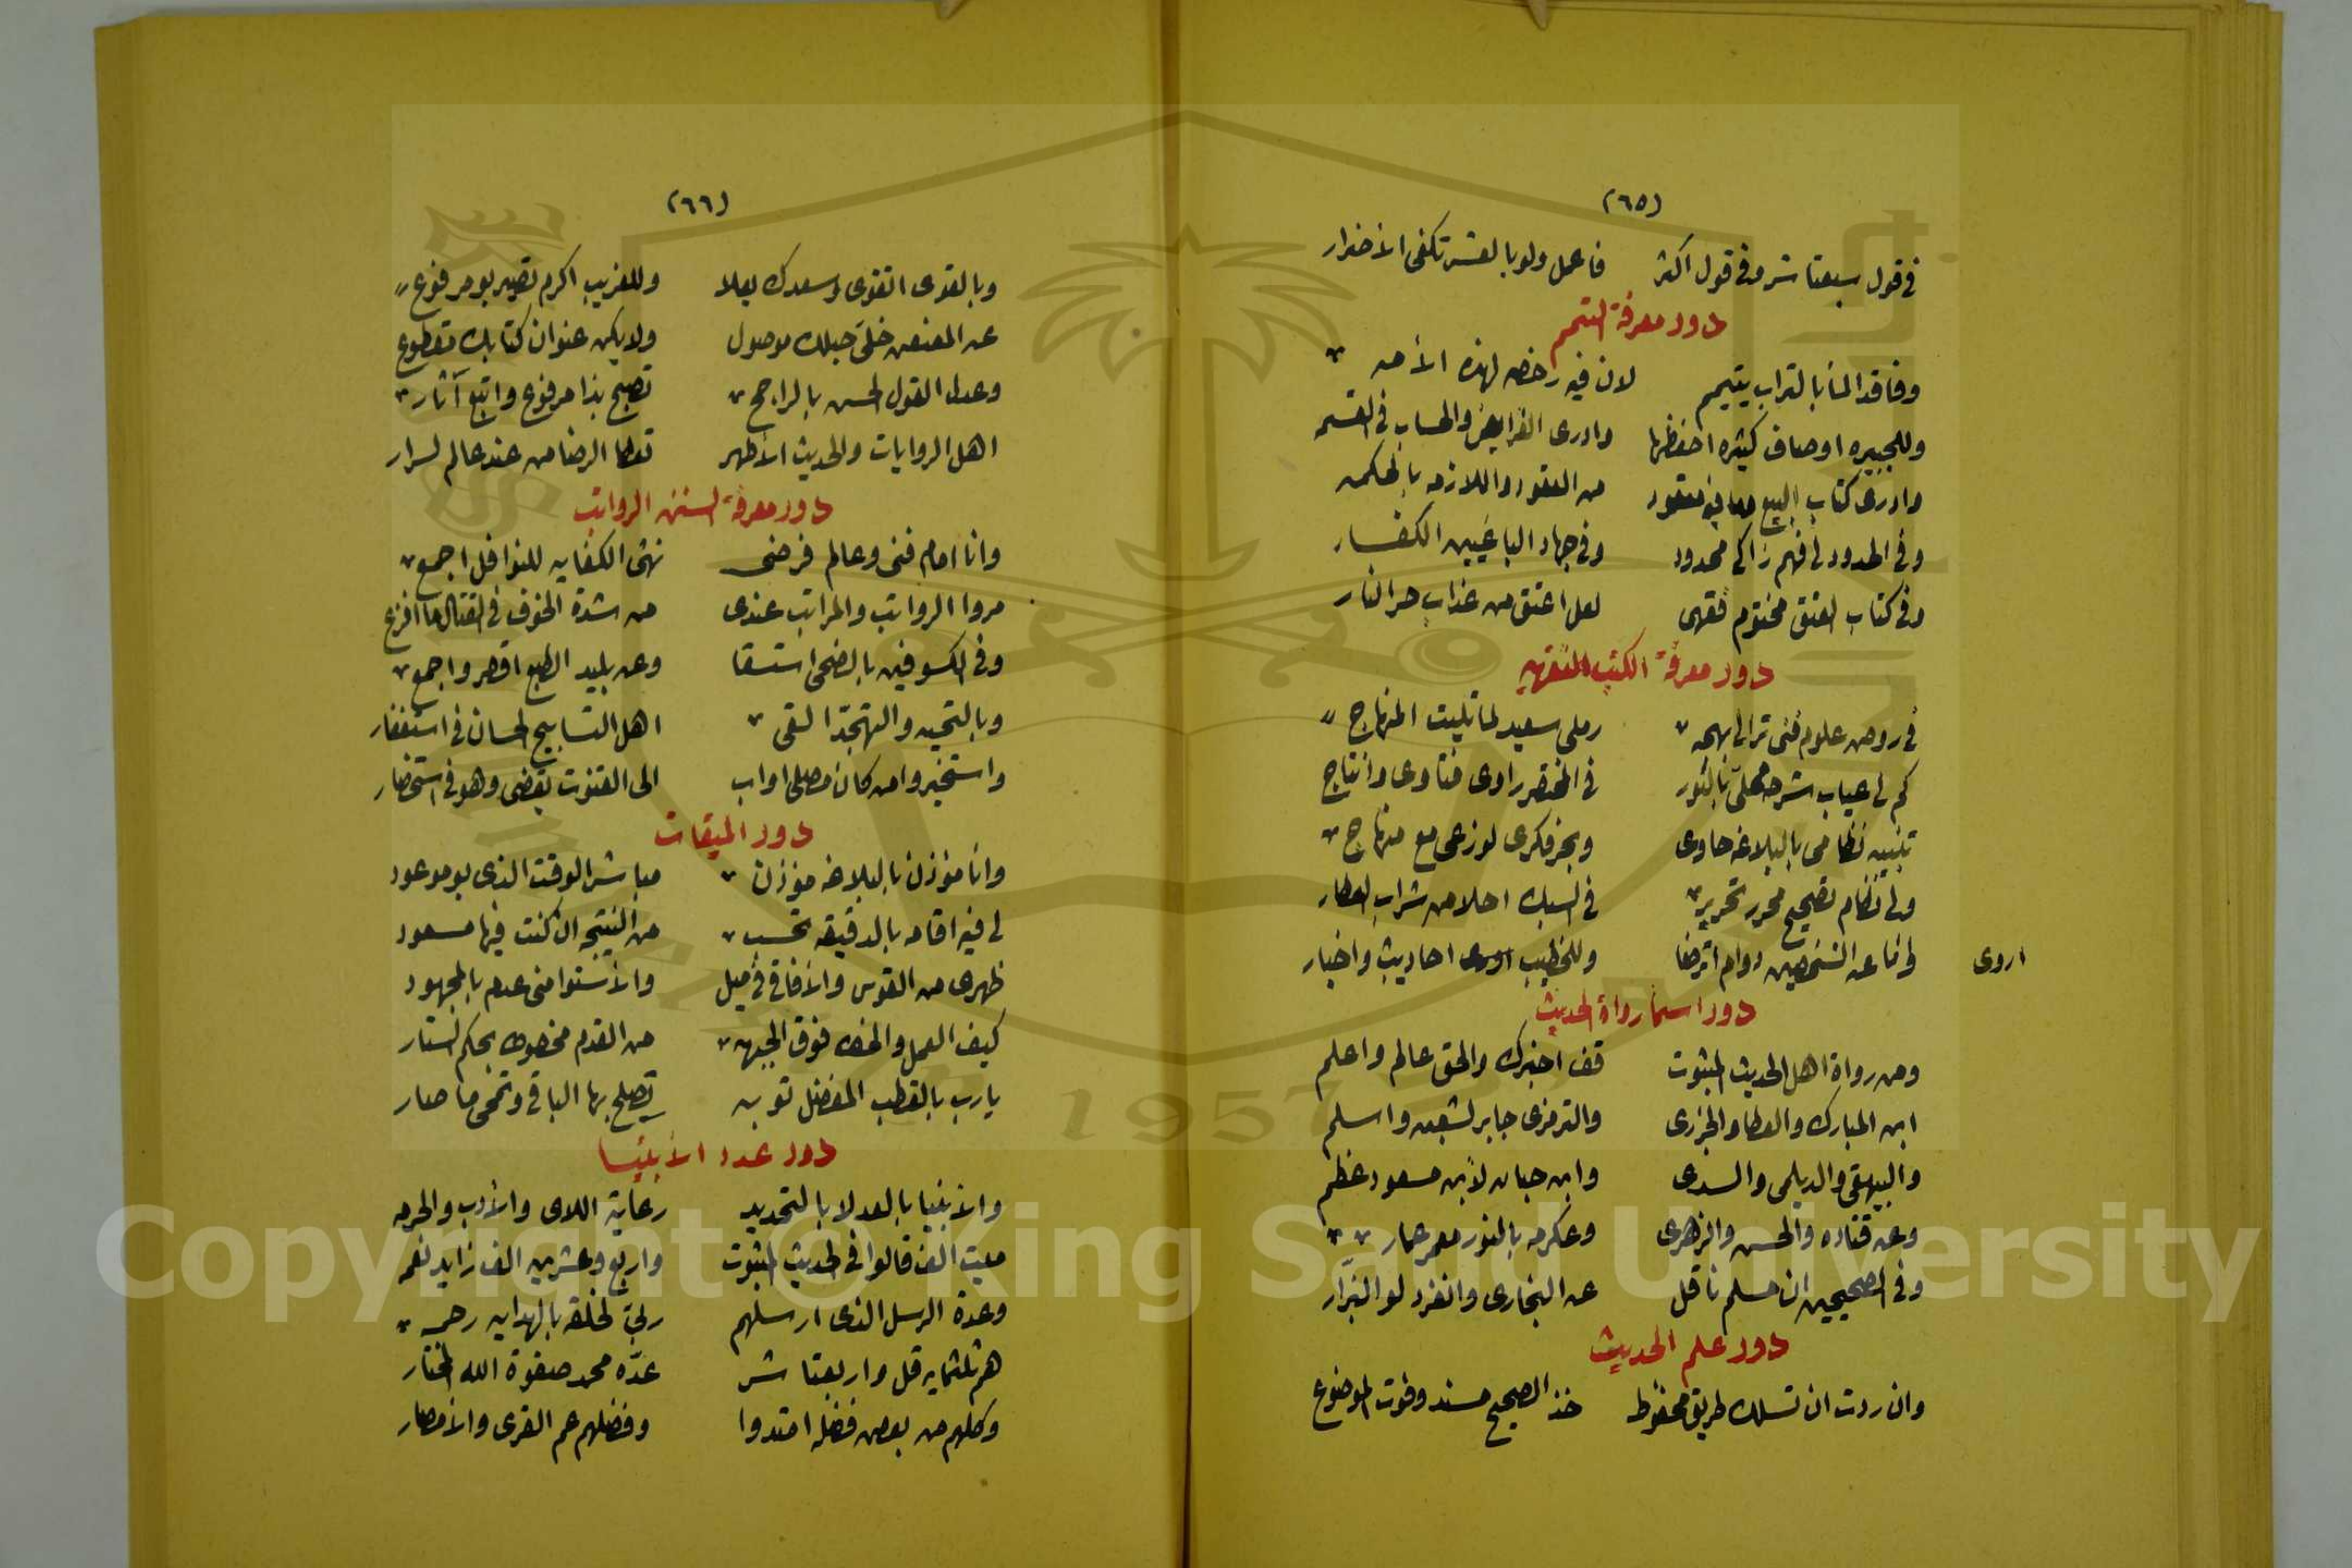 (٦٥)
في قول سبعتاشر وفي قول اكثر فاعمل ولو بالعشر تكفى الأضرار
دور معرفة التيمم
وفاقد الما بالتراب يتيمم لان فيه رخصه لهذه الأمه
وللجبيره اوصاف كثيره احفظها وادرى الفرايض والحساب في القسمه
وادرى كتاب البيع معقود من العقود واللازمه بالحكمه
وفي الحدود لي فهم زاكى محدود وفي جهاد الباغيين الكفار
وفي كتاب العتق مختوم فقهى لعل اعتق من عذاب حر النار
دور معرفة الكتب الفقهيه
في روض علوم فنى ترالى بهجه رملى سعيد لما تليت المنهاج
كم لى عباب شرحه محلى بالنور في المختصر راوى فتاوى وانتاج
تنبيه نظامى بالبلاغه حاوى وبحر فكرى لوزعى مع منهاج
ولى نظام تصحيح محرر تحرير في السبك احلا من شراب العطار
وانا عن الشيخين دوام اترضا وللخطيب اروى احاديث واخبار
اروى
دور اسما رواة الحديث
ومن رواة اهل الحديث المثبوت قف اخبرك والحق عالم واعلم
ابن المبارك والعطا والجزرى والترمزى جابر لشعبه واسلم
والبيهقى والديلمى والسدى وابن حبان لابن مسعود عظم
وعن قتاده والحسن والزهرى وعكرمه بالنور معمر عمار
وفي الصحيحين ان مسلم ناقل عن البخارى وانفرد لو البزار
دور علم الحديث
وان ردت ان تسلك طريق محفوظ خذ الصحيح مسند وفوت الموضوع
(٦٦)
وبالقوى اتقوى وسعدك يعلا وللغريب اكرم تصير بو مرفوع
عن المعنعن خلى حبلك موصول ولا يكن عنوان كتابك مقطوع
وعدل القول الحسن بالراجح تصبح بذا مرفوع واتبع آثار
اهل الروايات والحديث الأظهر تعطا الرضا من عند عالم لسرار
دور معرفة السنن الرواتب
وانا امام فنى وعالم فرضى نهى الكفايه للنوافل اجمع
مروا الرواتب والمراتب عندى من شدة الخوف في القتال ما افزع
وفي الكسوفين بالضحى استسقا وعن بليد الطبع اقصر واجمع
وبالتحيه والتهجد القى اهل التسابيح الحسان في استغفار
واستخيروا من كان مصلى اواب الى القنوت يقضى وهو في استحضار
دور الميقات
وانا مؤذن بالبلاغه مؤذن مباشر الوقت الذى بو موعود
لى فيه اقامه بالدقيقه تحسب من النتيجه ان كنت فيها مسعود
ظهرى من القوس والأفاق في ميل والأستوا منى عدم بالمجهود
كيف العمل والخط فوق الجبهه من القدم مخصوص بحكم الستار
يارب بالقطب المفضل توبه تصلح بها الباقى وتمحى ما صار
دور عدد الأنبيا
والأنبيا بالعد لا بالتحديد رعاية اللاى والأدب والحرمه
ميت الف قالوا في الحديث المثبوت واربع وعشرين الف زايد نعمه
وعدة الرسل الذى ارسلهم ربى لخلقه بالهدايه رحمه
هم ثلثمايه قل واربعتا شر عده محمد صفوة الله المختار
وكلهم من بعض فضله امتدوا وفضلهم عم القرى والأمصار